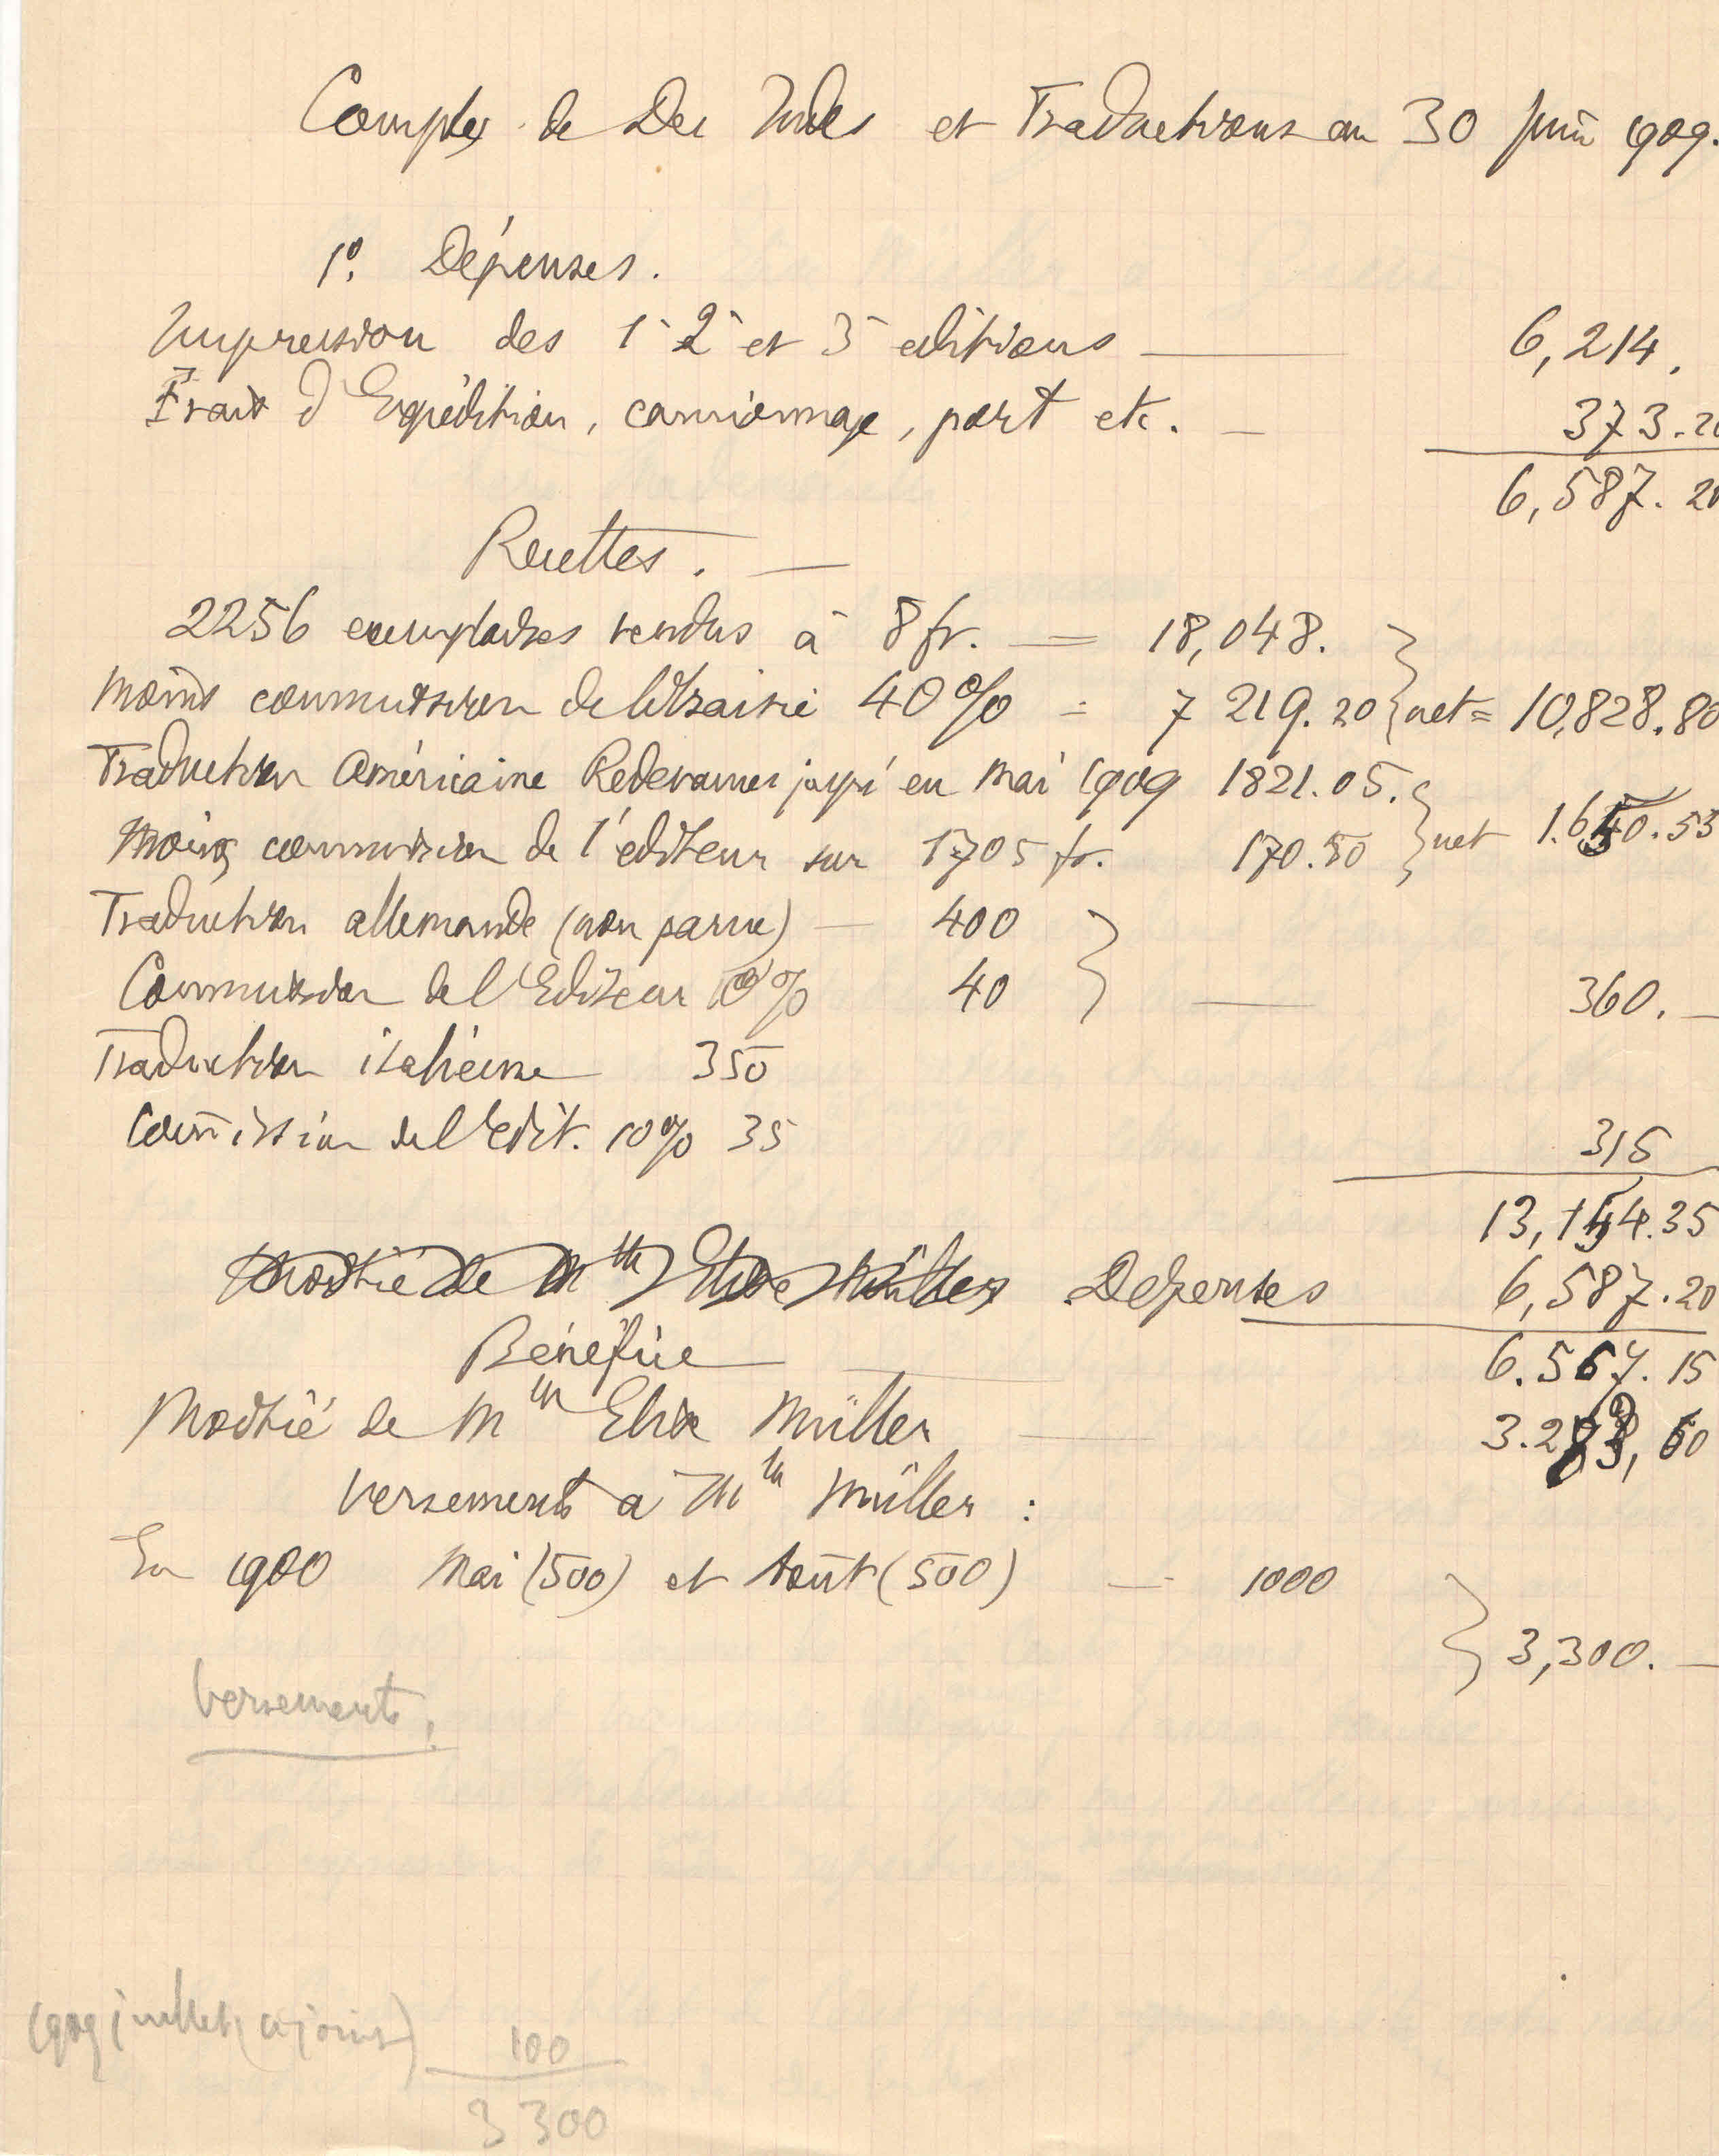 Comptes de Des Indes et Traductions au 30 Juin 1909.
1º. Dépenses.
Impression des 1e 2e et 3e editions — 6,214.
Frais d'Expédition, camionnage, port etc. — 373.20
6,587.20
Recettes. —
2256 exemplaires vendus à 8 fr. = 18,048.
moins commission de librairie 40% = 7 219.20 } net = 10,828.80
Traduction Américaine Redevances jusqu'en Mai 1909 1821.05.
Moins commission de l'éditeur sur 1705 fr. 170.50 } net 1.650.55
Traduction allemande (non parue) — 400
Commission de l'Editeur 10% 40 } — 360. —
Traduction italienne 350
Commission de l'Edit. 10% 35
315
13,154.35
Moitié de Mlle Elise Müller Dépenses 6,587.20
Bénéfice — 6.567.15
Moitié de Mlle Elise Müller — 3.283,60
Versements à Mlle Müller :
En 1900 Mai (500) et Août (500) — 1000
} 3,300. —
Versements.
(1909 juillet, ci-joint) 100
3 300